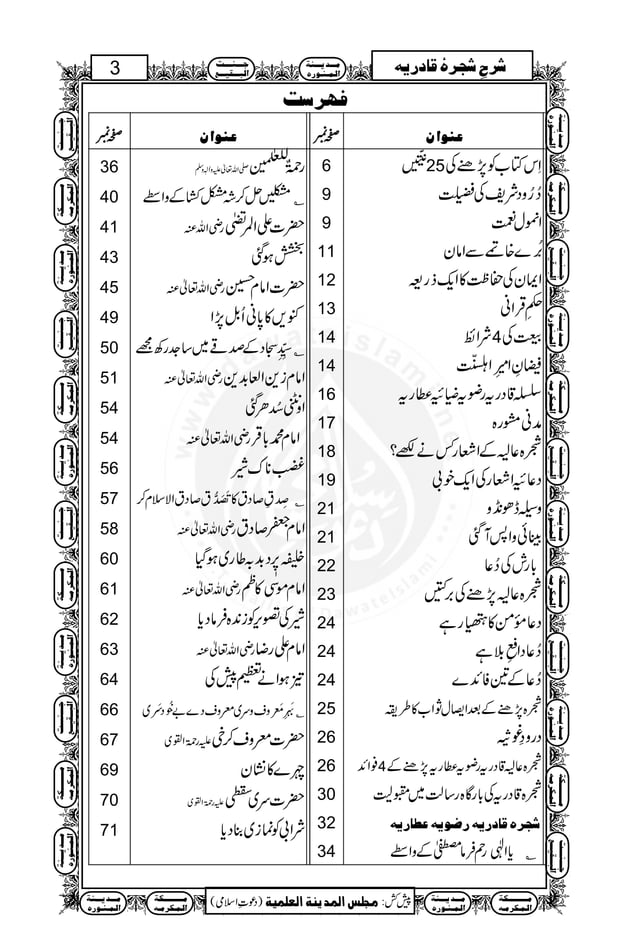 شرح شجرۂ قادریہ
مدينة المنوره
جنت البقيع
3
فہرست
عنوان
صفحہ نمبر
اِس کتاب کو پڑھنے کی 25 نیّتیں 6
دُرُود شریف کی فضیلت 9
انمول نعمت 9
بُرے خاتمے سے امان 11
ایمان کی حفاظت کا ایک ذریعہ 12
حکمِ قرآنی 13
بیعت کی 4 شرائط 14
فیضانِ امیرِ اہلسنّت 14
سلسلہ قادریہ رضویہ ضیائیہ عطاریہ 16
مدنی مشورہ 17
شجرہ عالیہ کے اشعار کس نے لکھے؟ 18
دعائیہ اشعار کی ایک خوبی 19
وسیلہ ڈھونڈو 21
بینائی واپس آ گئی 21
بارش کی دُعا 22
شجرہ عالیہ پڑھنے کی برکتیں 23
دعا مؤمن کا ہتھیار ہے 24
دُعا دافعِ بلا ہے 24
دُعا کے تین فائدے 24
شجرہ پڑھنے کے بعد ایصالِ ثواب کا طریقہ 25
درودِ غوثیہ 26
شجرہ عالیہ قادریہ رضویہ عطاریہ پڑھنے کے 4 فوائد 26
شجرہ قادریہ کی بارگاہِ رسالت میں مقبولیت 30
شجرہ قادریہ رضویہ عطاریہ 32
یاالٰہی رحم فرما مصطفٰی کے واسطے 34
عنوان
صفحہ نمبر
رحمۃٌ للعٰلمین صلی اللہ تعالیٰ علیہ واٰلہٖ وسلم 36
مشکلیں حل کر شہِ مشکل کشا کے واسطے 40
حضرت علی المرتضیٰ رضی اللہ عنہ 41
بخشش ہو گئی 43
حضرت امام حسین رضی اللہ تعالیٰ عنہ 45
کنویں کا پانی اُبل پڑا 49
سیّدِ سجاد کے صدقے میں ساجد رکھ مجھے 50
امام زین العابدین رضی اللہ تعالیٰ عنہ 51
اونٹنی سُدھر گئی 54
امام محمد باقر رضی اللہ تعالیٰ عنہ 54
غضب ناک شیر 56
صِدقِ صادق کا تَصَدُّق صادق الاسلام کر 57
امام جعفر صادق رضی اللہ تعالیٰ عنہ 58
خلیفہ پر دبدبہ طاری ہو گیا 60
امام موسٰی کاظم رضی اللہ تعالیٰ عنہ 61
شیر کی تصویر کو زندہ فرما دیا 62
امام علی رضا رضی اللہ تعالیٰ عنہ 63
تیز ہوا نے تعظیم پیش کی 64
بہرِ معروف و سری معروف دے بے خود سَری 66
حضرت معروف کرخی علیہ رحمۃ القوی 67
چہرے کا نشان 69
حضرت سری سقطی علیہ رحمۃ القوی 70
شرابی کو نمازی بنا دیا 71
پیش کش: مجلس المدینة العلمیة (دعوتِ اسلامی)
مكة المكرمه
مدينة المنوره
www.dawateislami.net
DawateIslami